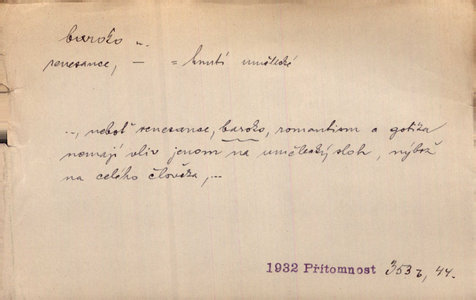 baroko ..
renesance, — = hnutí umělecké
.., neboť renesance, baroko, romantism a gotika
nemají vliv jenom na umělecký sloh, nýbrž
na celého člověka,..
1932 Přítomnost 353 r, 44.